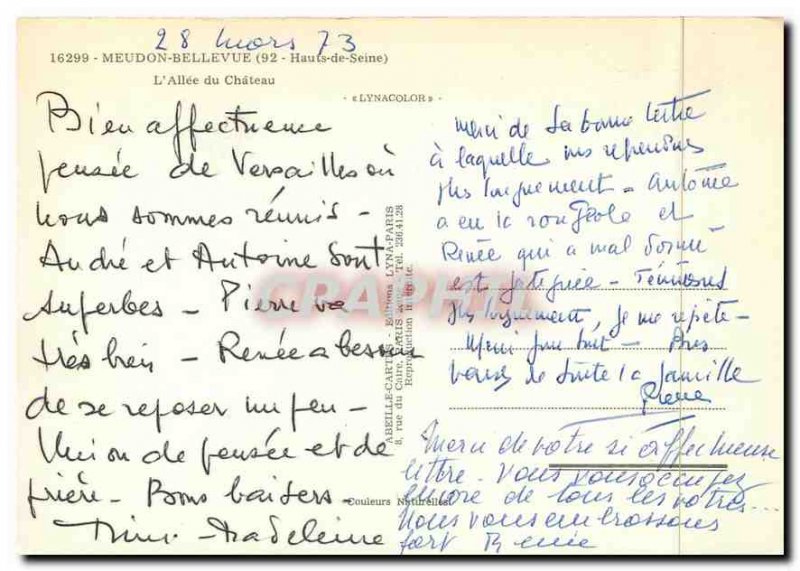 28 mars 73
16299 - MEUDON-BELLEVUE (92 - Hauts-de-Seine)
L'Allée du Château
« LYNACOLOR »
Bien affectueuse
pensée de Versailles où
nous sommes réunis -
André et Antoine sont
superbes - Pierre va
très bien - Renée a besoin
de se reposer un peu -
Union de pensée et de
prière - Bons baisers -
Madeleine
ABEILLE-CARTES - Editions LYNA-PARIS
8, rue du Caire, PARIS Tél. 236.41.28
Reproduction interdite.
Couleurs Naturelles
merci de ta bonne lettre
à laquelle répondrons
plus longuement - Antoine
a eu la rougeole et
Renée qui a mal dormi
est fatiguée -
plus longuement, je me répète -
Merci pour tout -
de suite la famille
Pierre
Merci de votre si affectueuse
lettre. Vous vous occupez
encore de tous les vôtres...
Nous vous embrassons
fort Renée
CPAPHIL